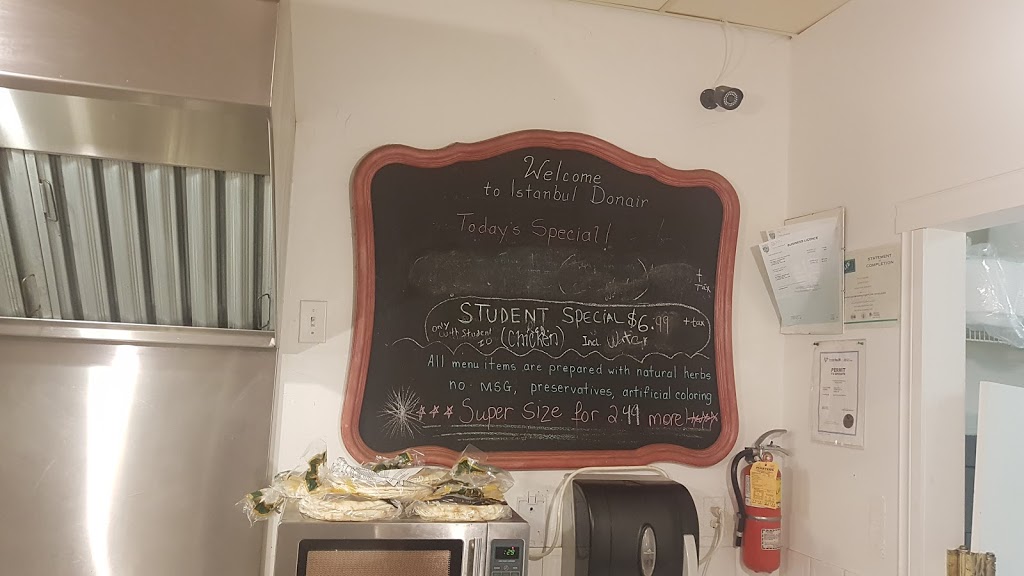 Welcome
to Istanbul Donair
Today's Special!
+
Tax
STUDENT SPECIAL $6.99 +tax
only
with student
ID
(chicken) Incl Water
All menu items are prepared with natural herbs
no. MSG, preservatives, artificial coloring
*** Super Size for 2.49 more! ****
BUSINESS LICENCE
STATEMENT
COMPLETION
PERMIT